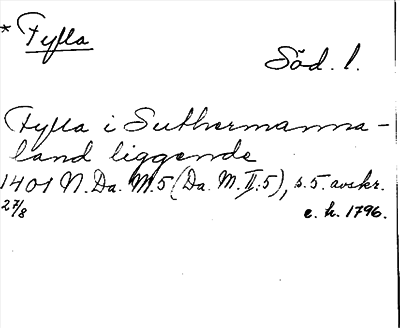 * Fylla
Söd. l.
Fylla i Suthermanna-
land liggende
1401 N. Da. M. 5 (Da. M. II:5), s. 5. avskr.
27/8 e. h. 1796.